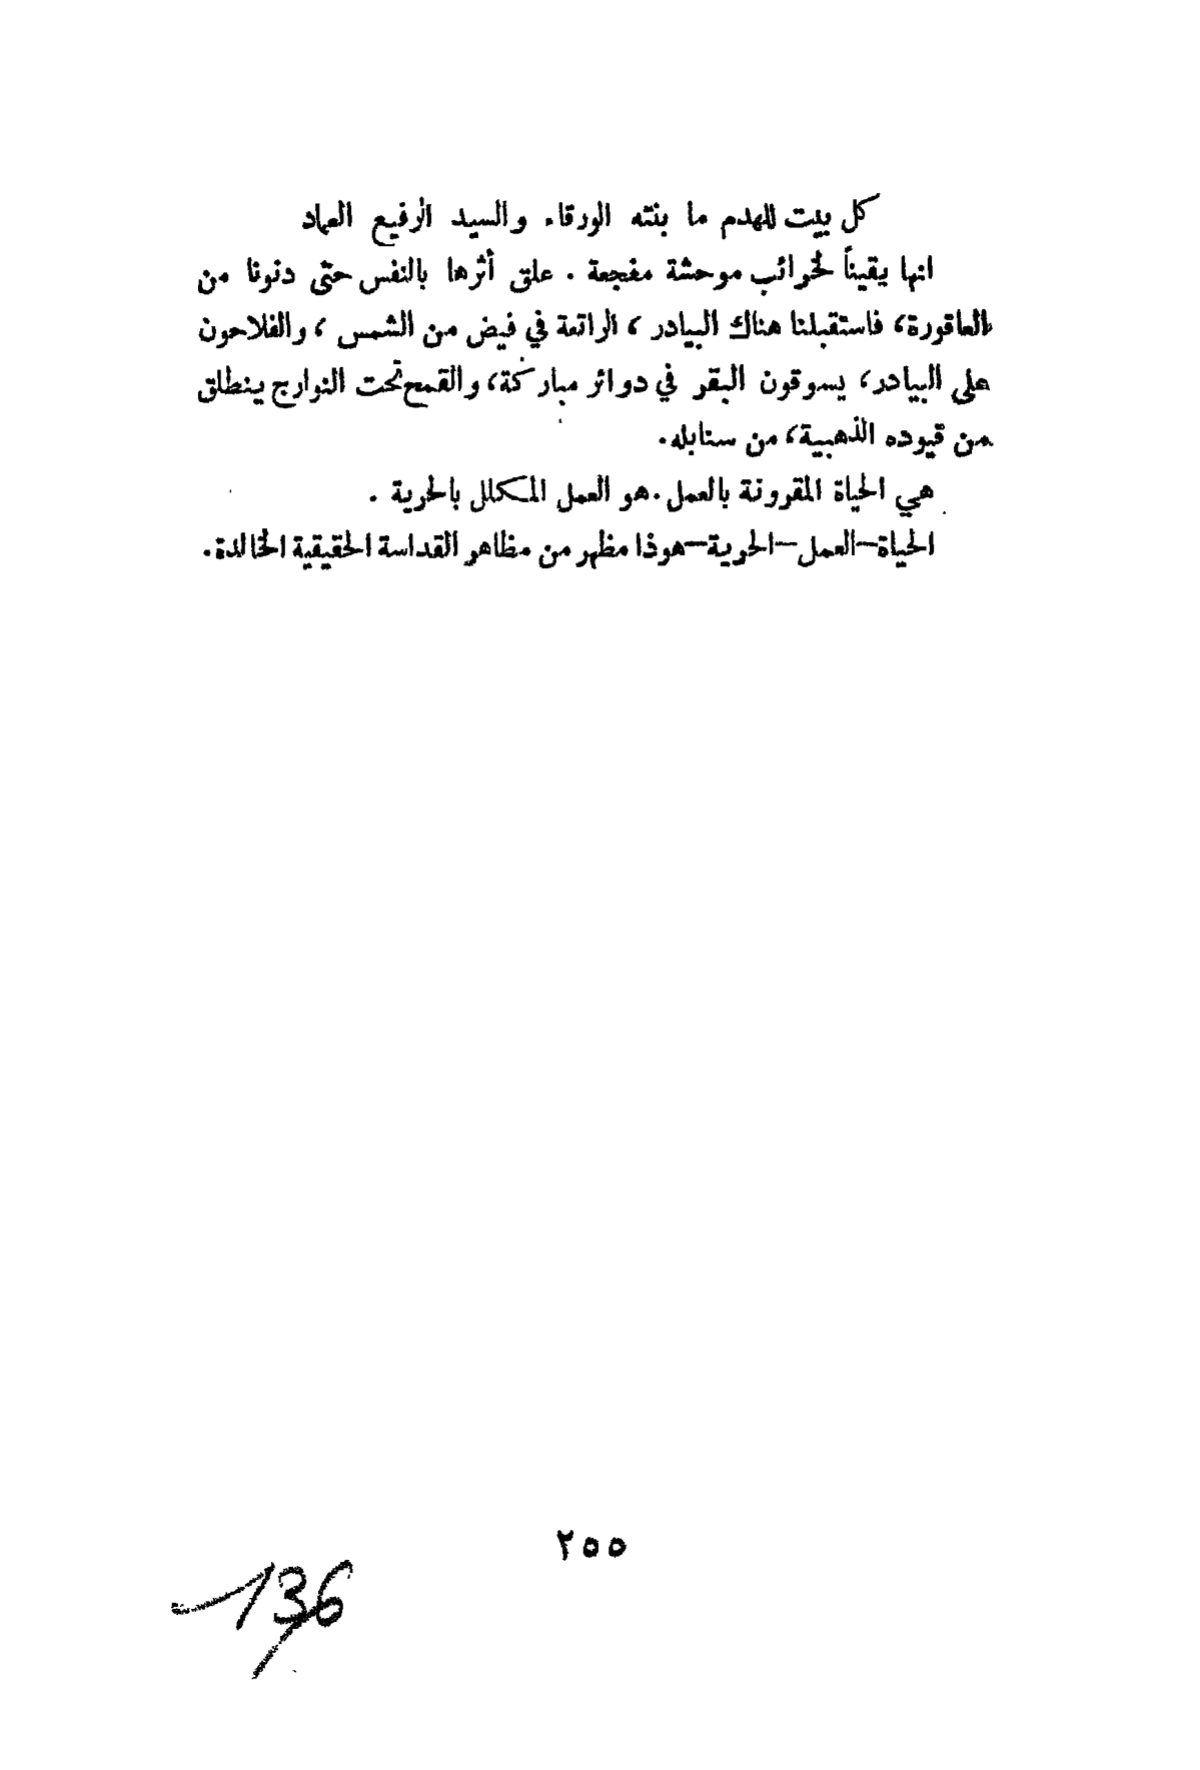 كل بيت للهدم ما بنته الورقاء والسيد الرفيع العماد
انها يقيناً لخرائب موحشة مفجعة . علق أثرها بالنفس حتى دنونا من
العاقورة، فاستقبلنا هناك البيادر، الراتعة في فيض من الشمس ، والفلاحون
على البيادر، يسوقون البقر في دوائر مباركة، والقمح تحت النوارج ينطلق
من قيوده الذهبية، من سنابله.
هي الحياة المقرونة بالعمل . هو العمل المكلل بالحرية .
الحياة–العمل–الحرية–هوذا مظهر من مظاهر القداسة الحقيقية الخالدة.
٢٥٥
136